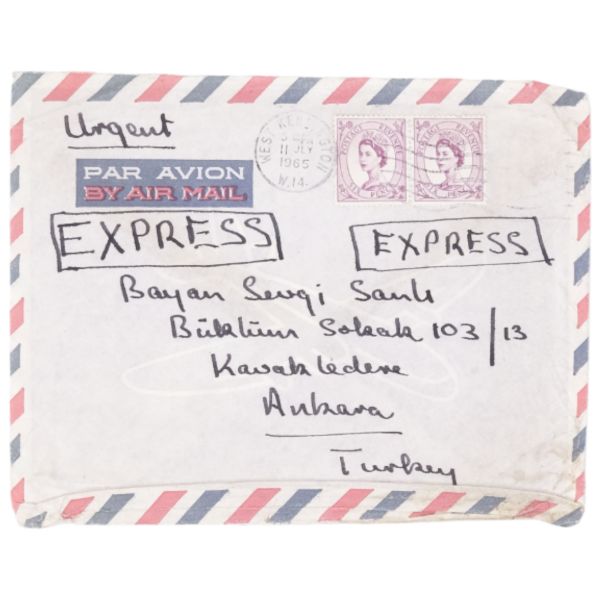 Urgent
PAR AVION
BY AIR MAIL
WEST KENSINGTON
11 JLY
1965
W.14.
POSTAGE REVENUE
POSTAGE REVENUE
EXPRESS
EXPRESS
Bayan Sevgi Sanlı
Büklüm Sokak 103/13
Kavaklıdere
Ankara
Turkey